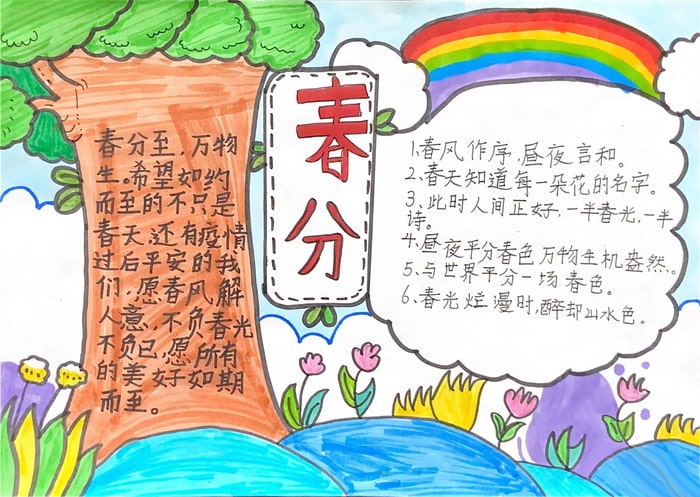 春分
春分至,万物
生。希望如约
而至的不只是
春天,还有疫情
过后平安的我
们,愿春风解
人意,不负春光
不负己,愿所有
的美好如期
而至。
1、春风作序,昼夜言和。
2、春天知道每一朵花的名字。
3、此时人间正好,一半春光,一半
诗。
4、昼夜平分春色万物生机盎然、
5、与世界平分一场春色。
6、春光烂漫时,醉却山水色。